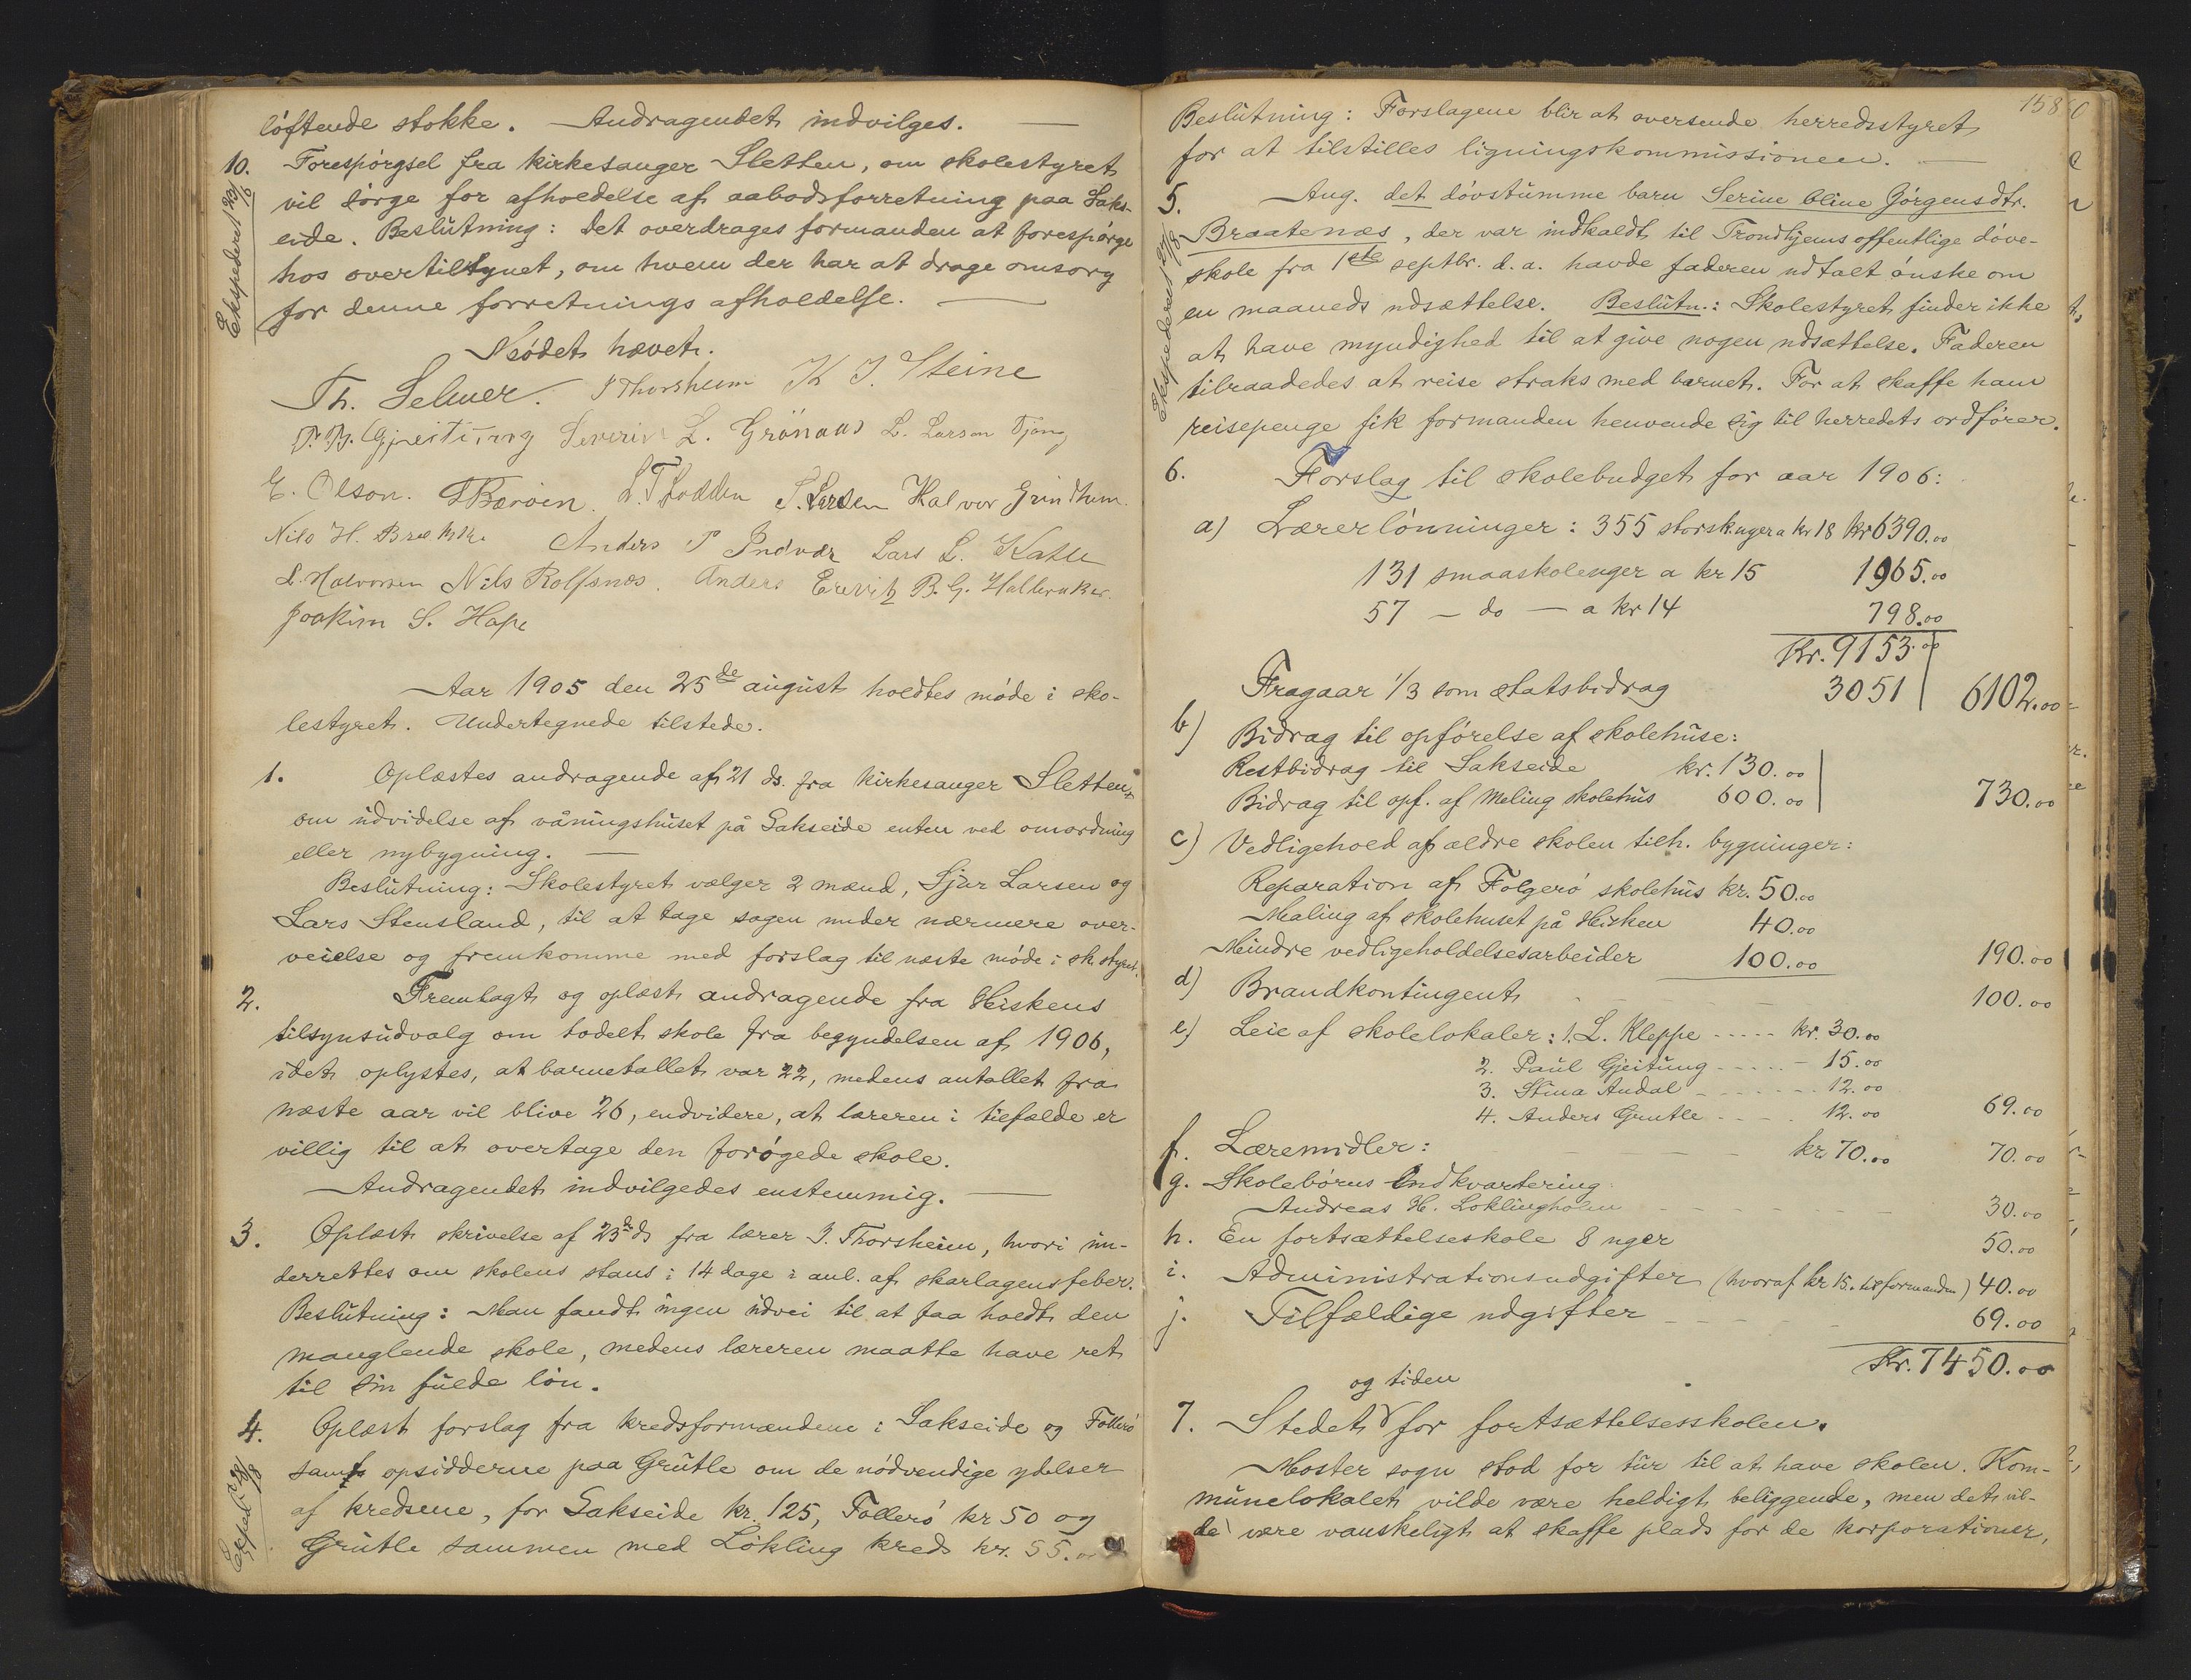 løftende stokke. — Andragendet indvilges. —
10. Forespørgsel fra kirkesanger Sletten, om skolestyret
vil sørge for afholdelse af aabodsforretning paa Saks-
eide. Beslutning: Det overdrages formanden at forespørge
hos overtilsynet, om hvem der har at drage omsorg
for denne forretnings afholdelse. —
Ekspederet 23/6
Mødet hævet.
Th. Selmer. I Thorsheim K J. Steine
P. P. Gjeitung Severin L. Grønaas L. Larsen Tjong
E. Olson. L. T. Hodden S. Larsen Halvor Grindheim.
Nils H. Anders P Lars L. Katle
L. Halvorsen Nils Rolfsnæs. Anders Eiervik B. G. Halleraker.
Joakim S. Hope
Aar 1905 den 25de august holdtes møde i sko-
lestyret. Undertegnede tilstede.
1. Oplæstes andragende af 21 ds. fra kirkesanger Sletten,
om udvidelse af våningshuset på Sakseide enten ved omordning
eller nybygning. —
Beslutning: Skolestyret vælger 2 mænd, Sjur Larsen og
Lars Stensland, til at tage sagen under nærmere over-
veielse og fremkomme med forslag til næste møde i sk.styret.
2. Fremlagt og oplæst andragende fra Hiskens
tilsynsudvalg om todelt skole fra begyndelsen af 1906,
idet oplystes, at barnetallet var 22, medens antallet fra
næste aar vil blive 26, endvidere, at læreren i tilfælde er
villig til at overtage den forøgede skole.
— Andragendet indvilgedes enstemmig. —
3. Oplæst skrivelse af 23de ds fra lærer I. Thorsheim, hvori un-
derrettes om skolens stans i 14 dage i anl. af skarlagensfeber.
Beslutning: Man fandt ingen udvei til at faa holdt den
manglende skole, medens læreren maatte have ret
til sin fulde løn.
4. Oplæst forslag fra kredsformændene i Sakseide og Follerø
samt opsidderne paa Grutle om de nødvendige ydelser
af kredsene, for Sakseide kr. 125, Follerø kr 50 og
Grutle sammen med Løkling kreds kr. 55.00
Exped. 28/8
158
Beslutning: Forslagene blir at oversende herredsstyret
for at tilstilles ligningskommissionen. —
5. Ang. det døvstumme barn Serine Oline Jørgensdtr.
Braatenæs, der var indkaldt til Trondhjems offentlige døve-
skole fra 1ste septbr. d. a. havde faderen udtalt ønske om
en maaneds udsættelse. Beslutn.: Skolestyret finder ikke
at have myndighed til at give nogen udsættelse. Faderen
tilraadedes at reise straks med barnet. For at skaffe ham
reisepenge fik formanden henvende sig til herredets ordfører.
Ekspederet 27/8
6. Forslag til skolebudget for aar 1906:
a) Lærerlønninger: 355 storsk.uger a kr 18 kr 6390.00
131 smaaskoleuger a kr 15 1965.00
57 — do — a kr 14 798.00
Kr. 9153.00
Fragaar 1/3 som statsbidrag 3051 6102.00
b) Bidrag til opførelse af skolehuse:
Restbidrag til Sakseide kr. 130.00
Bidrag til opf. af Meling skolehus 600.00 730.00
c) Vedligehold af ældre skolen tilh. bygninger:
Reparation af Folgerø skolehus kr. 50.00
Maling af skolehuset på Hisken 40.00
Mindre vedligeholdelsesarbeider 100.00 190.00
d) Brandkontingent 100.00
e) Leie af skolelokaler: 1. L. Kleppe ---- kr. 30.00
2. Paul Gjeitung ---- 15.00
3. Stina Andal ---- 12.00
4. Anders Grutle ---- 12.00 69.00
f. Læremidler: kr 70.00 70.00
g. Skolebørns Indkvartering:
Andreas H. Loklingholm 30.00
h. En fortsættelseskole 8 uger 50.00
i. Administrationsudgifter (hvoraf kr 15. til formanden) 40.00
j. Tilfældige udgifter 69.00
Kr. 7450.00
og tiden
7. Stedet for fortsættelsesskolen.
Moster sogn stod for tur til at have skolen. Kom-
munelokalet vilde være heldigt beliggende, men det vil-
de være vanskeligt at skaffe plads for de korporationer,